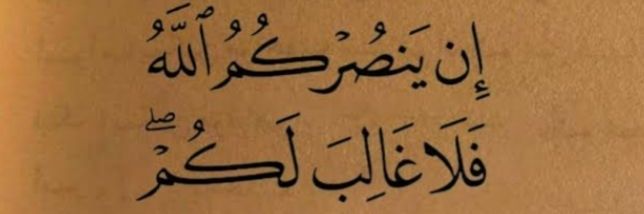 إِن يَنصُرْكُمُ ٱللَّهُ
فَلَا غَالِبَ لَكُمْ ۖ